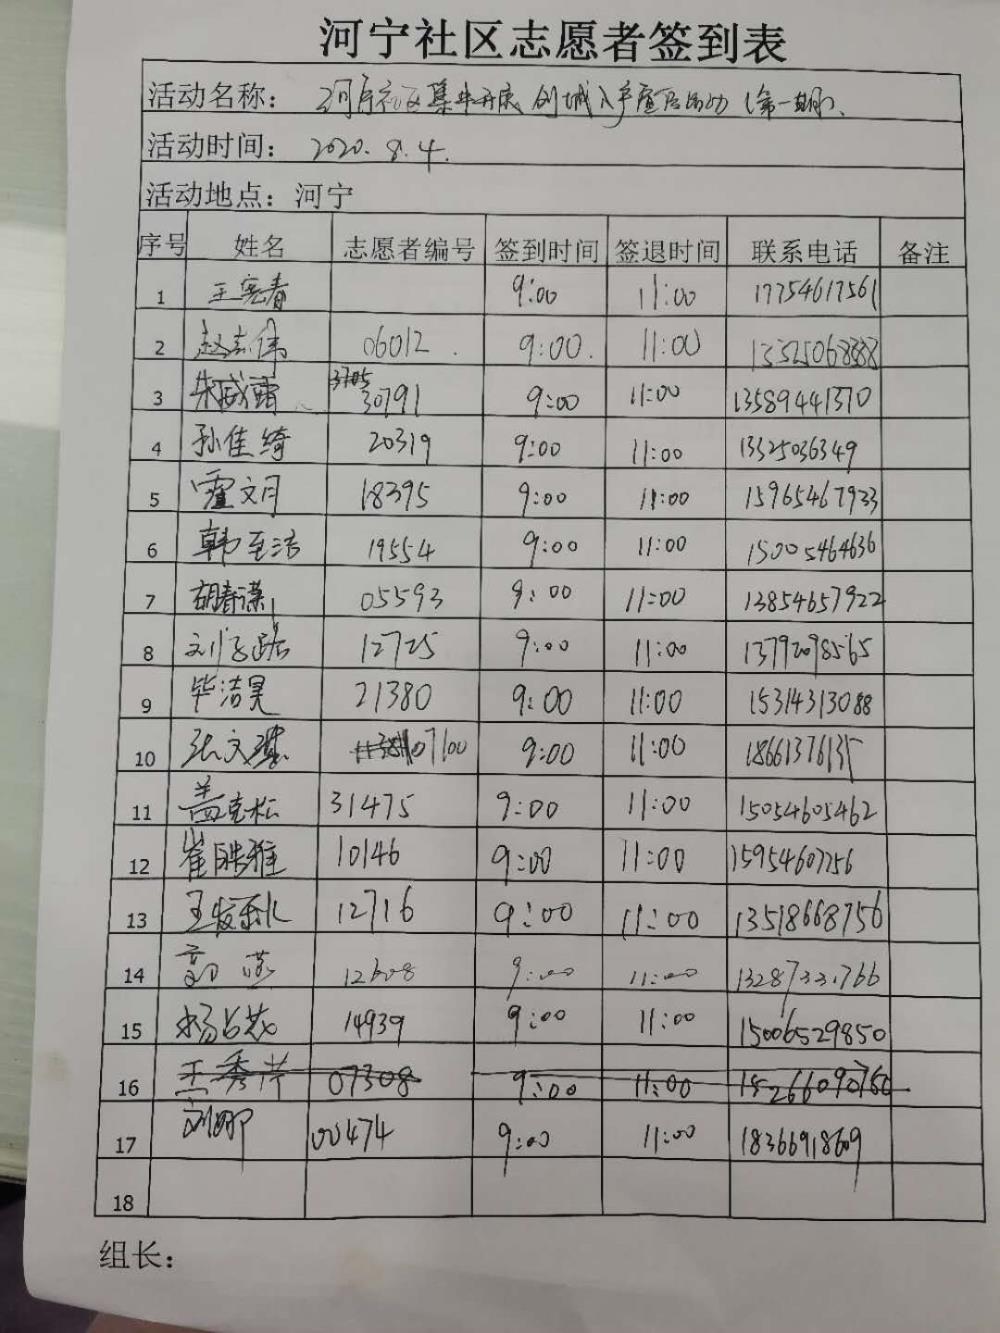 河宁社区志愿者签到表
活动名称：河宁社区集中开展创城入户宣传活动（第一期）
活动时间：2020.8.4.
活动地点：河宁
序号 姓名 志愿者编号 签到时间 签退时间 联系电话 备注
1 王宪春 9:00 11:00 17754617561
2 赵志伟 06012 9:00 11:00 13325068888
3 朱威霖 3705 30791 9:00 11:00 13589441370
4 孙佳绮 20319 9:00 11:00 13325036349
5 霍文月 18395 9:00 11:00 15965467933
6 韩至洁 19554 9:00 11:00 15005464636
7 胡春谋 05593 9:00 11:00 13854657922
8 12725 9:00 11:00 13792098565
9 毕洁昊 21380 9:00 11:00 15314313088
10 张文 07100 9:00 11:00 18661376135
11 盖克松 31475 9:00 11:00 15054605462
12 崔 雅 10146 9:00 11:00 15954607256
13 王 12716 9:00 11:00 13518668756
14 燕 12608 9:00 11:00
15 杨占花 14939 9:00 11:00 15006529850
16 王秀芹 07308 9:00 11:00 15266090760
17 刘娜 00474 9:00 11:00 18366918609
18
组长：